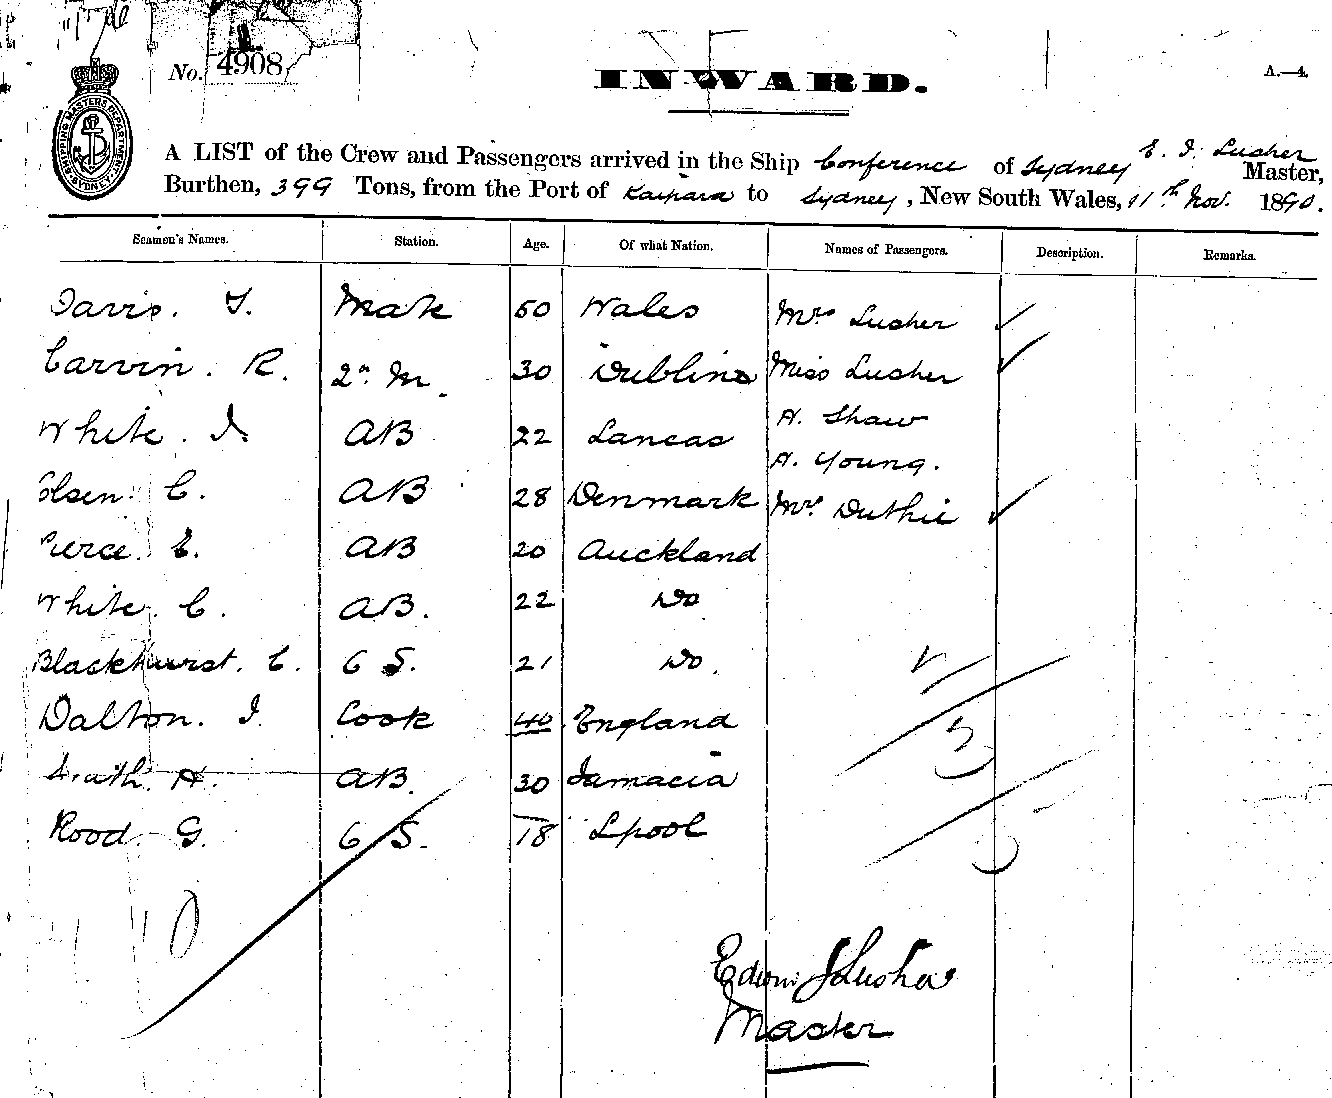 No. 4908
INWARD.
A.—4.
SHIPPING MASTERS DEPARTMENT SYDNEY
A LIST of the Crew and Passengers arrived in the Ship Conference of Sydney E. J. Lusher Master,
Burthen, 399 Tons, from the Port of Kaipara to Sydney, New South Wales, 11th Nov. 1890.
Seamen's Names. Station. Age. Of what Nation. Names of Passengers. Description. Remarks.
Davis. T. Mate 50 Wales Mrs Lusher
Carvin. R. 2n. M. 30 Dublin Miss Lusher
White. J. AB 22 Lancas A. Shaw
A. Young.
Olsen. C. AB 28 Denmark Mrs Duthie
Pierce. E. AB 20 Auckland
White. C. AB. 22 Do
Blackhurst. C. O S. 21 Do.
Dalton. J. Cook 40 England
H. AB. 30 Jamacia
Rood. G. O S. 18 Lpool
10
Edwin J Lusher
Master